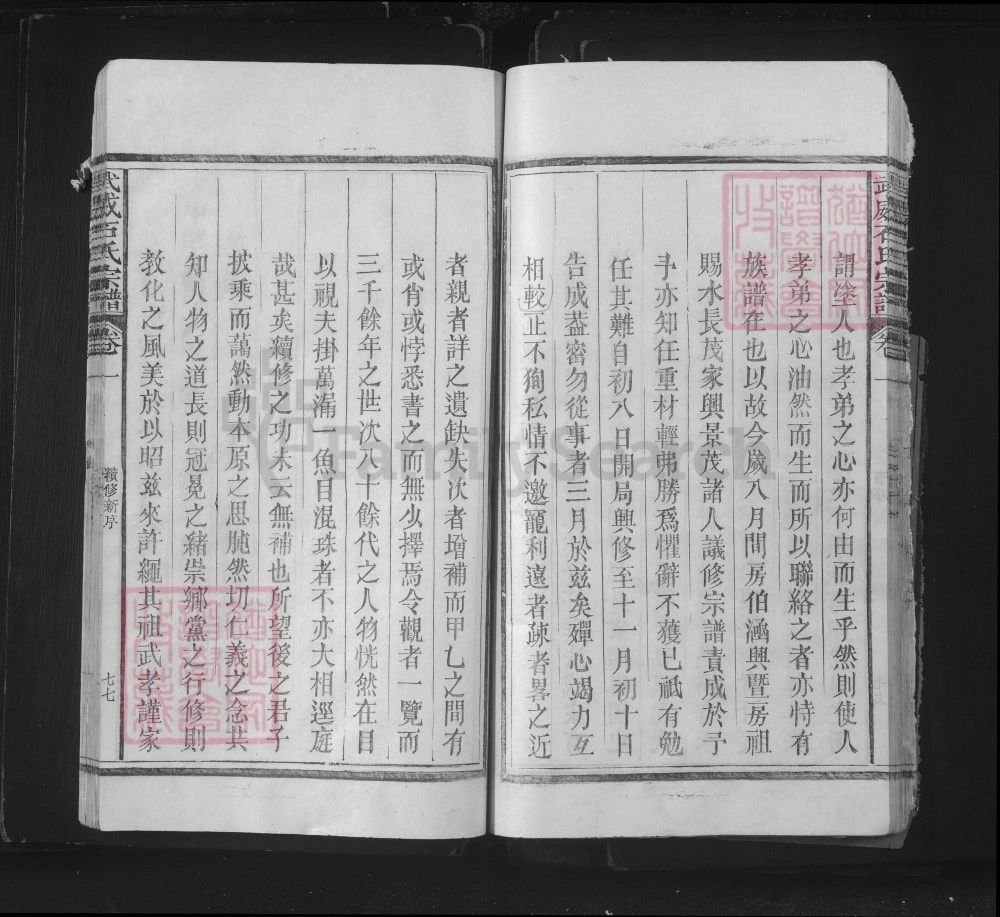 武威石氏宗譜
卷一
謂塗人也孝弟之心亦何由而生乎然則使人
孝弟之心油然而生而所以聯絡之者亦恃有
族譜在也以故今歲八月間房伯涵興暨房祖
賜水長茂家興景茂諸人議修宗譜責成於予
予亦知任重材輕弗勝為懼辭不獲已祇有勉
任其難自初八日開局興修至十一月初十日
告成葢密勿從事者三月於兹矣殫心竭力互
相較正不狥私情不邀寵利遠者疎者畧之近
者親者詳之遺缺失次者增補而甲乙之間有
或肖或悖悉書之而無少擇焉令觀者一覽而
三千餘年之世次八十餘代之人物恍然在目
以視夫掛萬漏一魚目混珠者不亦大相逕庭
哉甚矣續修之功未云無補也所望後之君子
披乘而藹然動本原之思肫然切仁義之念共
知人物之道長則冠冕之緒崇鄉黨之行修則
教化之風美於以昭兹來許繩其祖武孝謹家
武威石氏宗譜
卷一
續修新序
七七
FamilySearch